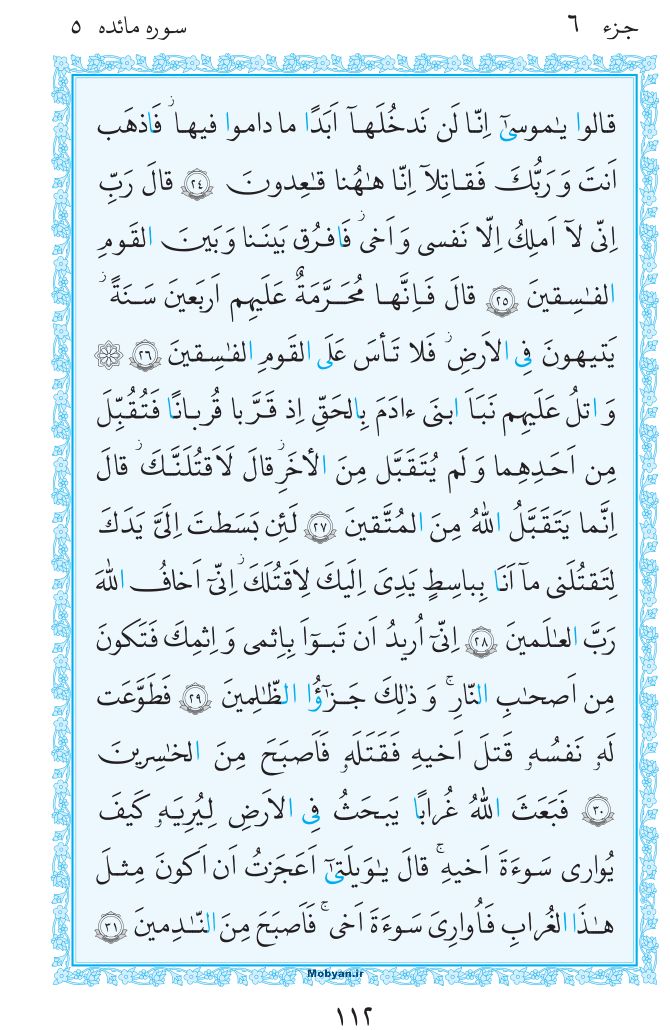 جزء ۶ سوره مائده ۵
قالوا يٰموسىٰٓ اِنّا لَن نَدخُلَهآ اَبَدًا ما داموا فيها ۖ فَاذهَب
اَنتَ وَ رَبُّكَ فَقاتِلآ اِنّا هٰهُنا قٰعِدونَ ﴿٢٤﴾ قالَ رَبِّ
اِنّى لآ اَملِكُ اِلّا نَفسى وَ اَخى ۖ فَافرُق بَينَنا وَ بَينَ القَومِ
الفٰسِقينَ ﴿٢٥﴾ قالَ فَاِنَّها مُحَرَّمَةٌ عَلَيهِم اَربَعينَ سَنَةً ۛ
يَتيهونَ فِى الاَرضِ ۚ فَلا تَأسَ عَلَى القَومِ الفٰسِقينَ ﴿٢٦﴾ ۞
وَ اتلُ عَلَيهِم نَبَاَ ابنَى ءادَمَ بِالحَقِّ اِذ قَرَّبا قُربانًا فَتُقُبِّلَ
مِن اَحَدِهِما وَ لَم يُتَقَبَّل مِنَ الأخَرِ قالَ لَاَقتُلَنَّكَ ۖ قالَ
اِنَّما يَتَقَبَّلُ اللّٰهُ مِنَ المُتَّقينَ ﴿٢٧﴾ لَئِن بَسَطتَ اِلَىَّ يَدَكَ
لِتَقتُلَنى مآ اَنَا بِباسِطٍ يَدِىَ اِلَيكَ لِاَقتُلَكَ ۖ اِنّىٓ اَخافُ اللّٰهَ
رَبَّ العٰلَمينَ ﴿٢٨﴾ اِنّىٓ اُريدُ اَن تَبوٓاَ بِاِثمى وَ اِثمِكَ فَتَكونَ
مِن اَصحٰبِ النّارِ ۚ وَ ذٰلِكَ جَزٰٓؤُا الظّٰلِمينَ ﴿٢٩﴾ فَطَوَّعَت
لَهٗ نَفسُهٗ قَتلَ اَخيهِ فَقَتَلَهٗ فَاَصبَحَ مِنَ الخٰسِرينَ
﴿٣٠﴾ فَبَعَثَ اللّٰهُ غُرابًا يَبحَثُ فِى الاَرضِ لِيُرِيَهٗ كَيفَ
يُوارى سَوءَةَ اَخيهِ ۚ قالَ يٰوَيلَتىٰٓ اَعَجَزتُ اَن اَكونَ مِثلَ
هٰذَا الغُرابِ فَاُوارِىَ سَوءَةَ اَخى ۖ فَاَصبَحَ مِنَ النّٰدِمينَ ﴿٣١﴾
Mobyan.ir
١١٢